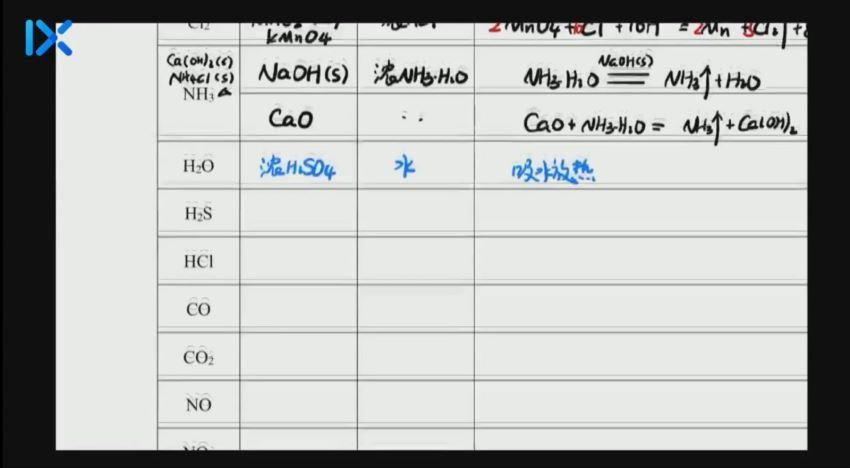 IX
Cl₂
KMnO4
2MnO4 +6Cl +16H = 2Mn +3Cl₂↑+
Ca(OH)₂(s)
NH4Cl(s)
NH₃ △
NaOH(s)
浓NH3·H₂O
NH3·H₂O NaOH(s) ═ NH3↑+H₂O
CaO
··
CaO+NH3·H₂O= NH3↑+Ca(OH)₂
H₂O
浓H₂SO4
水
吸水放热
H₂S
HCl
CO
CO₂
NO